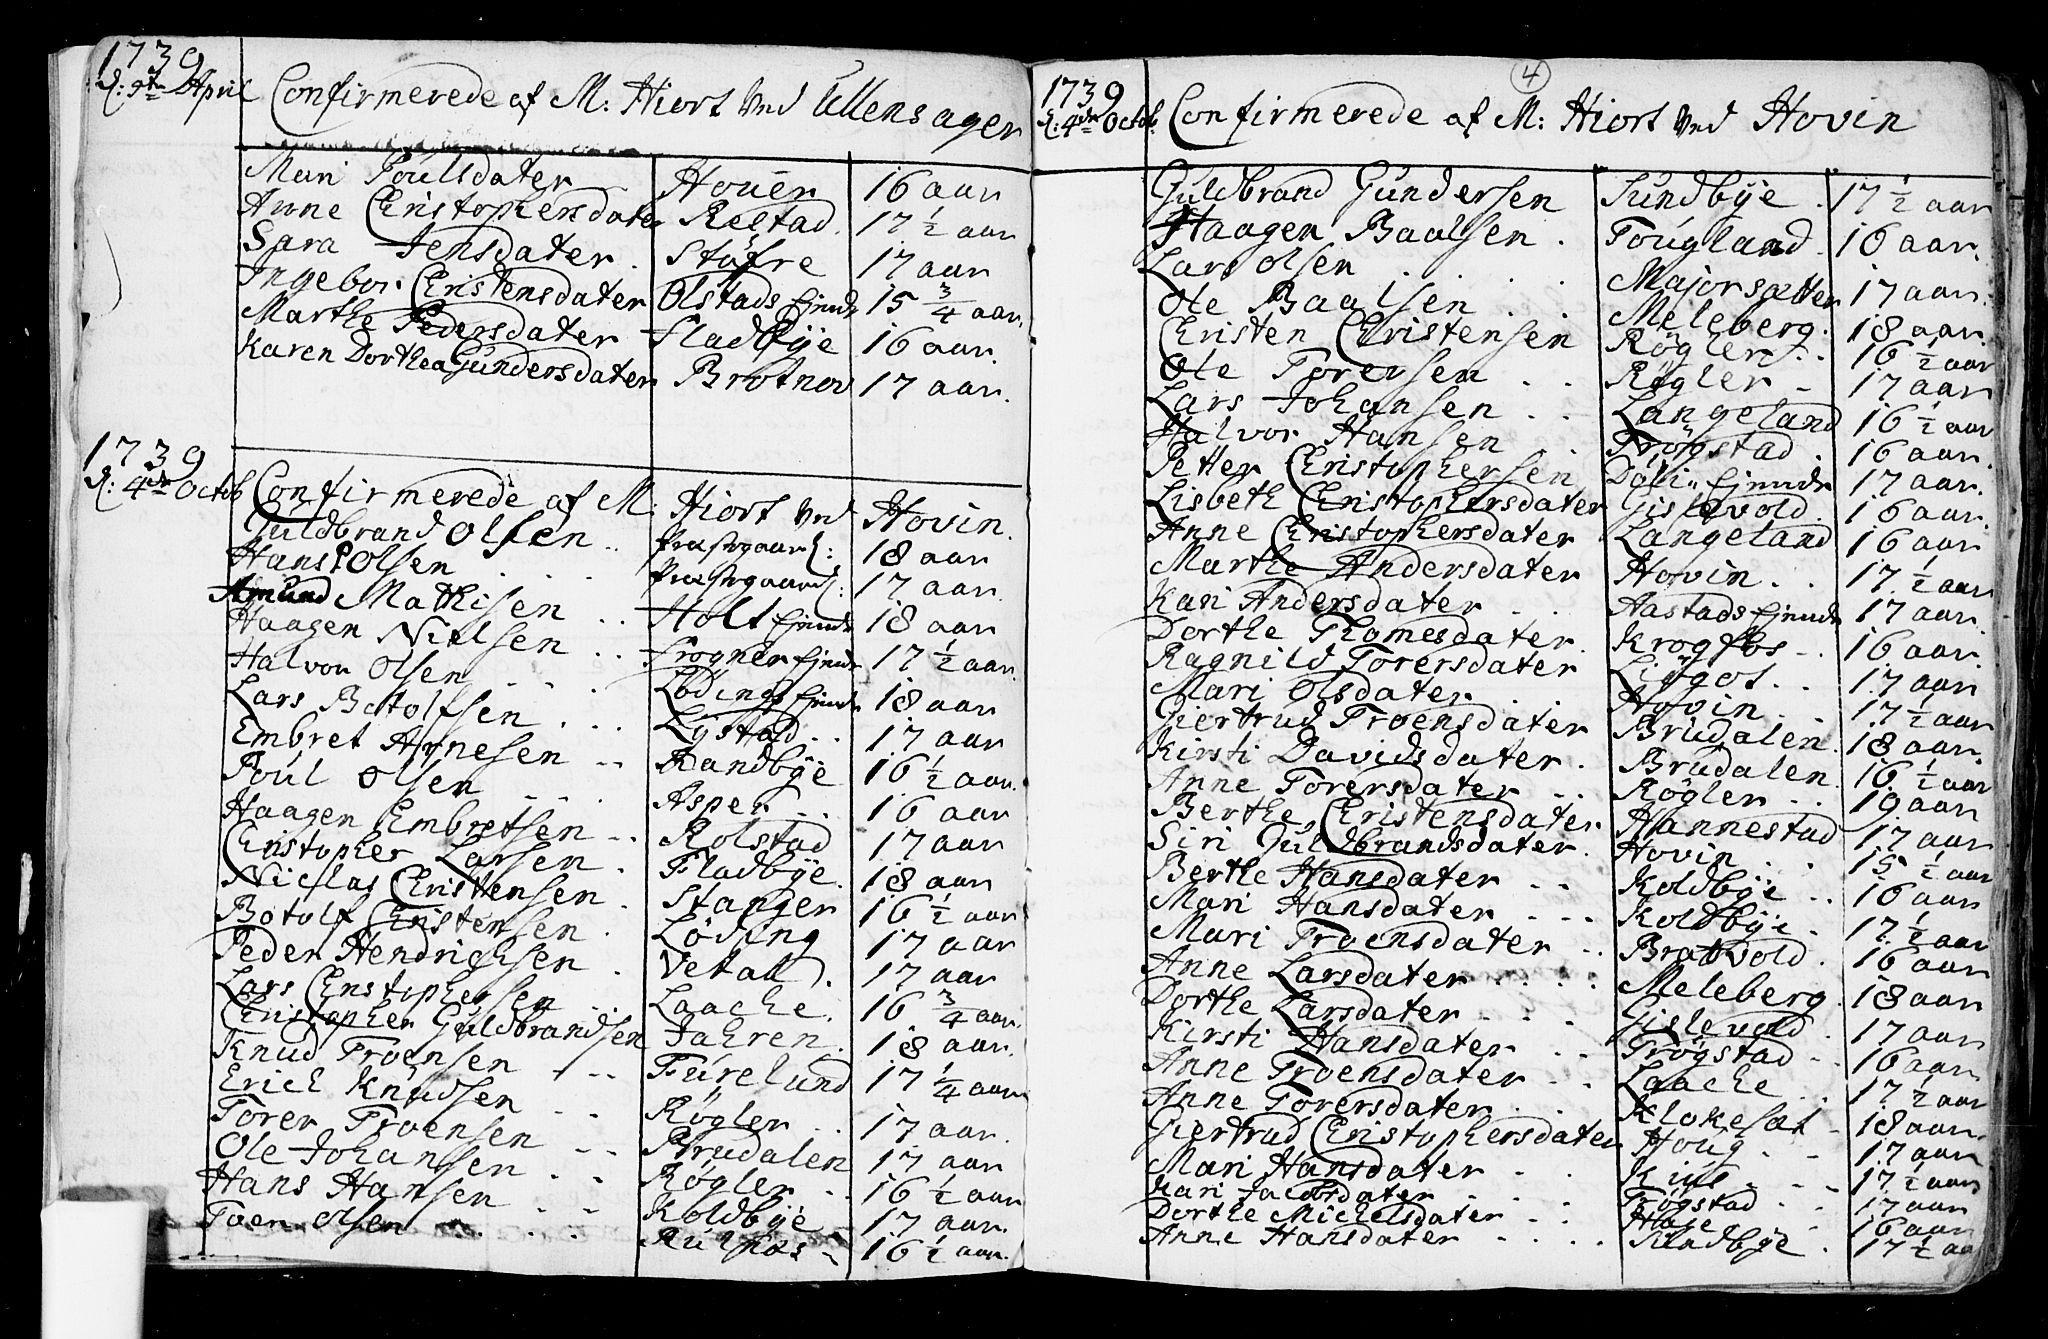 1739
d: 9de April Confirmerede af M: Hiort Ved Ullensager
Mari Poulsdater Houer 16 aar
Anne Christophersdater Reistad 17 1/2 aar
Sara Jensdater Støfre 17 aar
Ingebor Christensdater Olstads Ejende 15 3/4 aar
Marthe Pedersdater Fladbÿe 16 aar
Karen Dorthea Gundersdater Brotnov 17 aar
1739
d: 4de Octob Confirmerede af M: Hiort Ved Hovin
Guldbrand Olsen Præstgaard: 18 aar
Hans Olsen Præstegaard: 17 aar
Amund Mathisen Holt Ejende 18 aar
Haagen Nielsen Frogner Ejende 17 1/2 aar
Halvor Olsen Lødings Ejende 18 aar
Lars Botolfsen Lÿstad 17 aar
Embret Arnesen Randbÿe 16 1/2 aar
Poul Olsen Asper 16 aar
Haagen Embretsen Rolstad 17 aar
Christopher Larsen Fladbÿe 18 aar
Niclas Christensen Stanger 16 1/2 aar
Botolf Christensen Løding 17 aar
Peder Hendrichsen Vekall 17 aar
Lars Christophersen Laache 16 3/4 aar
Christopher Guldbrandsen Jahren 18 aar
Knud Troensen Furelund 17 1/4 aar
Erich Knudsen Røgler 17 aar
Torer Troensen Brudalen 17 aar
Ole Johansen Røgler 16 1/2 aar
Hans Hansen Koldbÿe 17 aar
Toer Olsen 16 1/2 aar
4
1739
d: 4de Octob Confirmerede af M: Hiort Ved Hovin
Guldbrand Gundersen Sundbÿe 17 1/2 aar
Haagen Baalsen Tougland 16 aar
Lars Olsen Majorsætter 17 aar
Ole Baalsen Meleberg 18 aar
Christen Christensen Røgler 16 1/2 aar
Ole Torersen Røgler 17 aar
Lars Johansen Langeland 16 1/2 aar
Halvor Hansen Trøgstad 16 aar
Petter Christophersen Døli Ejende 17 aar
Lisbeth Christophersdater Gislevold 16 aar
Anne Christophersdater Langeland 16 aar
Marthe Andersdater Hovin 17 1/2 aar
Kari Andersdater Aastads Ejende 17 aar
Dorthe Thomesdater Krogfos 16 aar
Ragnild Torersdater Liøgot 17 aar
Mari Olsdater Hovin 17 1/2 aar
Giertrud Troensdater Brudalen 18 aar
Kirsti Davidsdater Brudalen 16 1/2 aar
Anne Torersdater Røgler 19 aar
Berthe Christensdater Hannestad 17 aar
Siri Guldbrandsdater Hovin 15 1/2 aar
Berthe Hansdater Koldbÿe 16 aar
Mari Hansdater Koldbÿe 17 1/2 aar
Mari Troensdater Bratvold 16 aar
Anne Larsdater Meleberg 18 aar
Dorthe Larsdater Gislevold 17 aar
Kirsti Hansdater Trøgstad 16 aar
Anne Troensdater Laache 17 1/2 aar
Anne Torersdater Klokesæt 18 aar
Giertrud Christophersdater Houg 17 aar
Mari Hansdater 17 1/2 aar
Kari Jacobsdater Trøgstad 17 aar
Dorthe Michelsdater 16 aar
Anne Hansdater Kladbÿe 17 1/2 aa